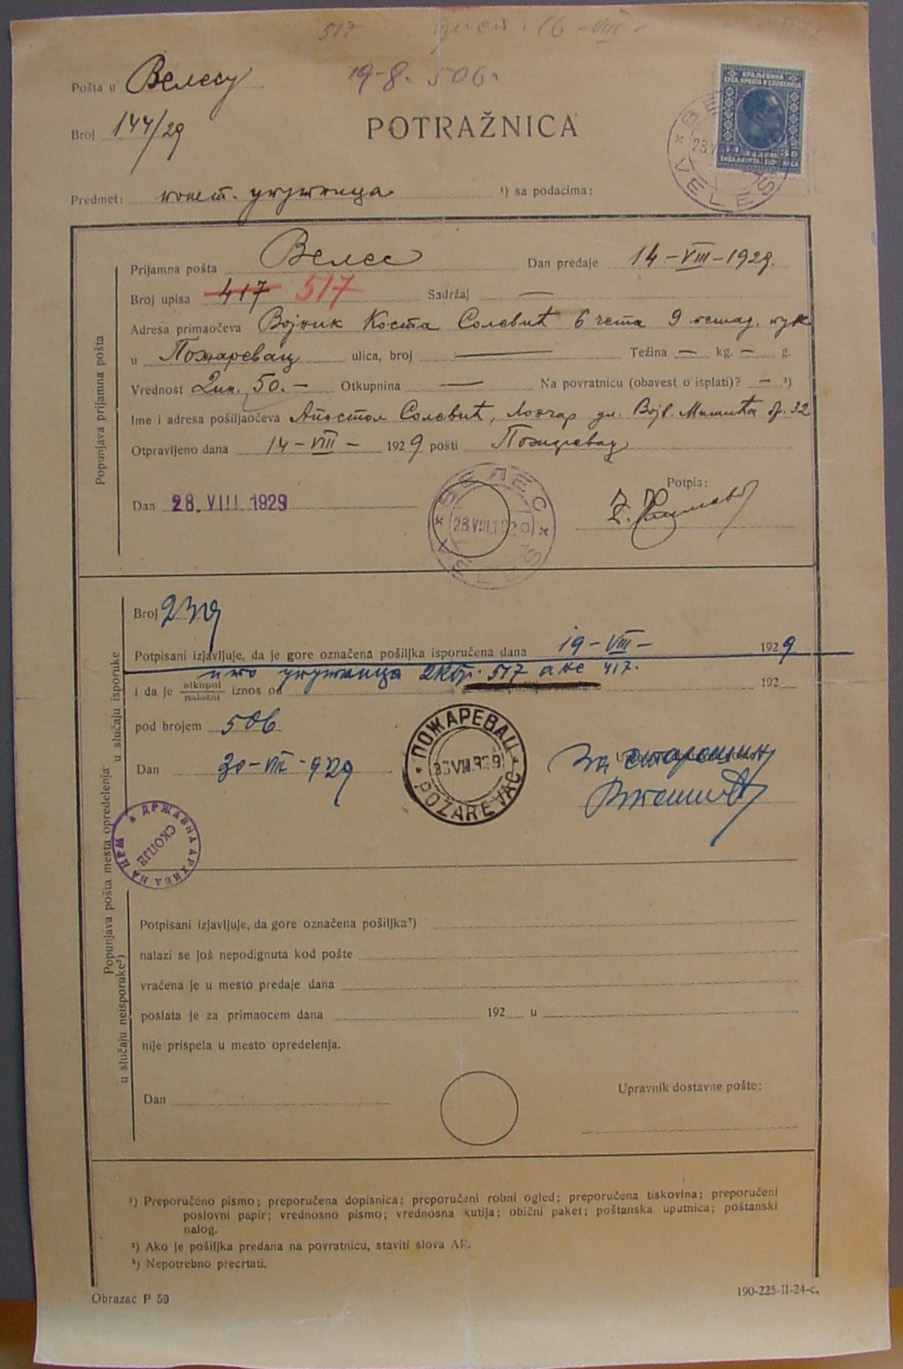 517 16-VIII-
Pošta u Велесу 19-8. 506.
Broj 144/29
POTRAŽNICA
КРАЉЕВИНА
СРБА, ХРВАТА И СЛОВЕНАЦА
ВЕЛЕС VELES
Predmet: пошт. упутница ¹) sa podacima:
Popunjava prijamna pošta
Prijamna pošta Велес Dan predaje 14-VIII-1929.
Broj upisa 417 517 Sadržaj —
Adresa primaočeva Војник Коста Солевић 6 чета 9 пешад. пук
u Пожаревац ulica, broj — Težina — kg. — g.
Vrednost Дин. 50.- Otkupnina — Na povratnicu (obavest o isplati)? — ²)
Ime i adresa pošiljaočeva Апостол Солевић, Лончар ул. Војв. Мишића бр. 32
Otpravljeno dana 14-VIII- 1929 pošti Пожаревац
Potpis:
Dan 28. VIII. 1929
ВЕЛЕС 28.VIII.1929 VELES
Popunjava pošta mesta opredelenja:
u slučaju isporuke
Broj
Potpisani izjavljuje, da je gore označena pošiljka isporučena dana 19-VIII- 1929
упутница 517 а не 417.
i da je otkupni naložni iznos od 192
pod brojem 506
Dan 30-VIII-929
ПОЖАРЕВАЦ POŽAREVAC
За старешину
ДРЖАВНА АРХИВА НА НРМ СКОПЈЕ
u slučaju neisporuke³)
Potpisani izjavljuje, da gore označena pošiljka³)
nalazi se još nepodignuta kod pošte
vraćena je u mesto predaje dana
poslata je za primaocem dana 192 u
nije prispela u mesto opredelenja.
Dan Upravnik dostavne pošte:
¹) Preporučeno pismo; preporučena dopisnica; preporučeni robni ogled; preporučena tiskovina; preporučeni
poslovni papir; vrednosno pismo; vrednosna kutija; obični paket; poštanska uputnica; poštanski
nalog.
²) Ako je pošiljka predana na povratnicu, staviti slova AR.
³) Nepotrebno precrtati.
Obrazac P 59 190-225-II-24-c.